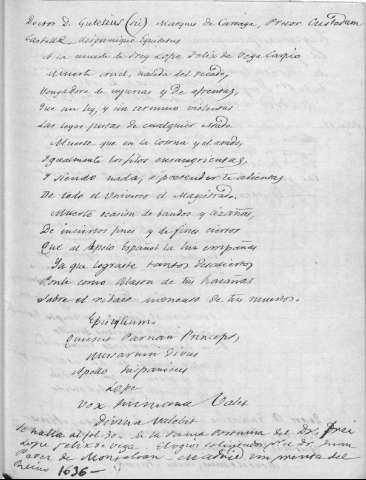 Doctor D. Gutelius (sic) Marques de Careaga, Prior Custodum
Castellæ Equitatus
A la muerte de frey Lope Felix de Vega Carpio
Muerte cruel, nacida del pecado,
Vengadora de injurias y de afrentas,
Que sin ley, y sin termino violentas
Las leyes justas de cualquier estado.
Muerte que en la corona y el arado,
Igualmente los filos ensangrientas,
Y siendo nada, a pretender te alientas
De todo el Universo el Magistrado.
Muerte ocasion de bandos y cizañas,
De inciertos fines y de fines ciertos
Que al Apolo Español la luz empañas
Ya que lograste tantos desaciertos
Ponte como blason de tus hazañas
Sobre el ridículo monceto de tus muertos.
Epinghium.
Quienes Parnasi Princeps,
Musarum Divus
Apollo hispanicus
Lope
Vox humana Vales
Divina Valebis
Se halla al fol. 30. de la Fama Postuma del Dr. Frei
Lope Felix de Vega Elogios colegidos pr. el Dr. Juan
Perez de Montalvan Madrid Imprenta del
Reino 1636 —